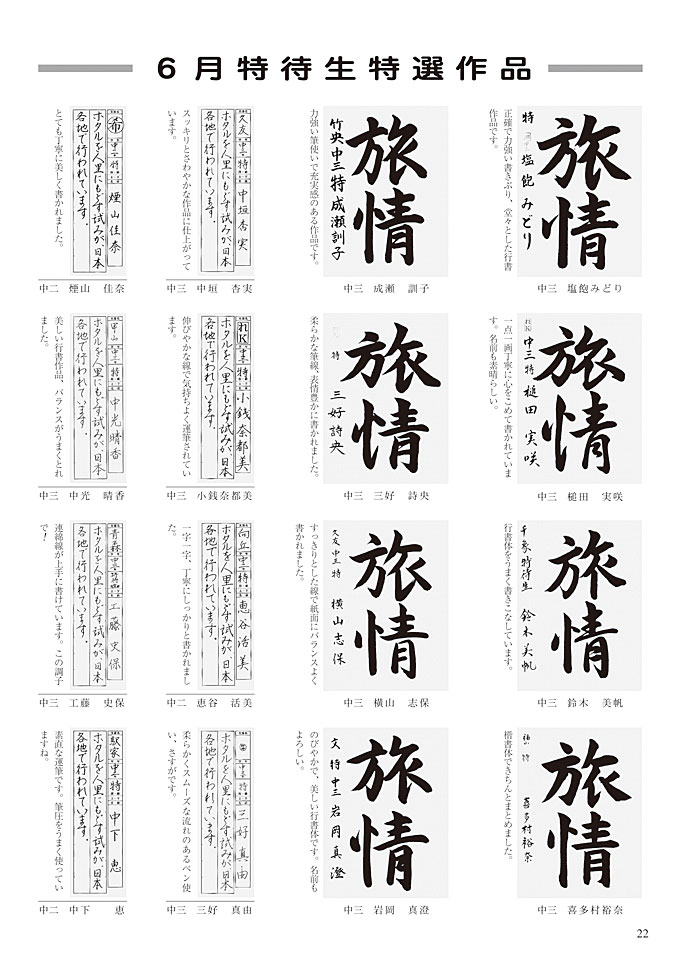 6月特待生特選作品
旅情
特 塩飽みどり
正確で力強い書きぶり、堂々とした行書
作品です。
中三 塩飽みどり
旅情
竹央中三特 成瀬訓子
力強い筆使いで充実感のある作品です。
中三 成瀬 訓子
久友 中三 特 中垣杏実
ホタルを人里にもどす試みが、日本
各地で行われています。
スッキリとさわやかな作品に仕上がって
います。
中三 中垣 杏実
布 中二 特 煙山佳奈
ホタルを人里にもどす試みが、日本
各地で行われています。
とても丁寧に美しく書かれました。
中二 煙山 佳奈
旅情
れK 中三特 槌田実咲
一点一画丁寧に心をこめて書かれていま
す。名前も素晴らしい。
中三 槌田 実咲
旅情
特 三好詩央
柔らかな筆線、表情豊かに書かれました。
中三 三好 詩央
れK 中三 特 小銭奈都美
ホタルを人里にもどす試みが、日本
各地で行われています。
伸びやかな線で気持ちよく運筆されてい
ます。
中三 小銭奈都美
中三 特 中光晴香
ホタルを人里にもどす試みが、日本
各地で行われています。
美しい行書作品、バランスがうまくとれ
ました。
中三 中光 晴香
旅情
特待生 鈴木美帆
行書体をうまく書きこなしています。
中三 鈴木 美帆
旅情
久友 中三 特 横山志保
すっきりとした線で紙面にバランスよく
書かれました。
中三 横山 志保
向丘 中二 特 恵谷活美
ホタルを人里にもどす試みが、日本
各地で行われています。
一字一字、丁寧にしっかりと書かれまし
た。
中二 恵谷 活美
青森 中三 工藤史保
ホタルを人里にもどす試みが、日本
各地で行われています。
連綿線が上手に書けています。この調子
で！
中三 工藤 史保
旅情
特 喜多村裕奈
楷書体できちんとまとめました。
中三 喜多村裕奈
旅情
文 特 中三 岩岡真澄
のびやかで、美しい行書体です。名前も
よろしい。
中三 岩岡 真澄
中三 特 三好真由
ホタルを人里にもどす試みが、日本
各地で行われています。
柔らかくスムーズな流れのあるペン使
い、さすがです。
中三 三好 真由
中二 特 中下恵
ホタルを人里にもどす試みが、日本
各地で行われています。
素直な運筆です。筆圧をうまく使ってい
ますね。
中二 中下 恵
22